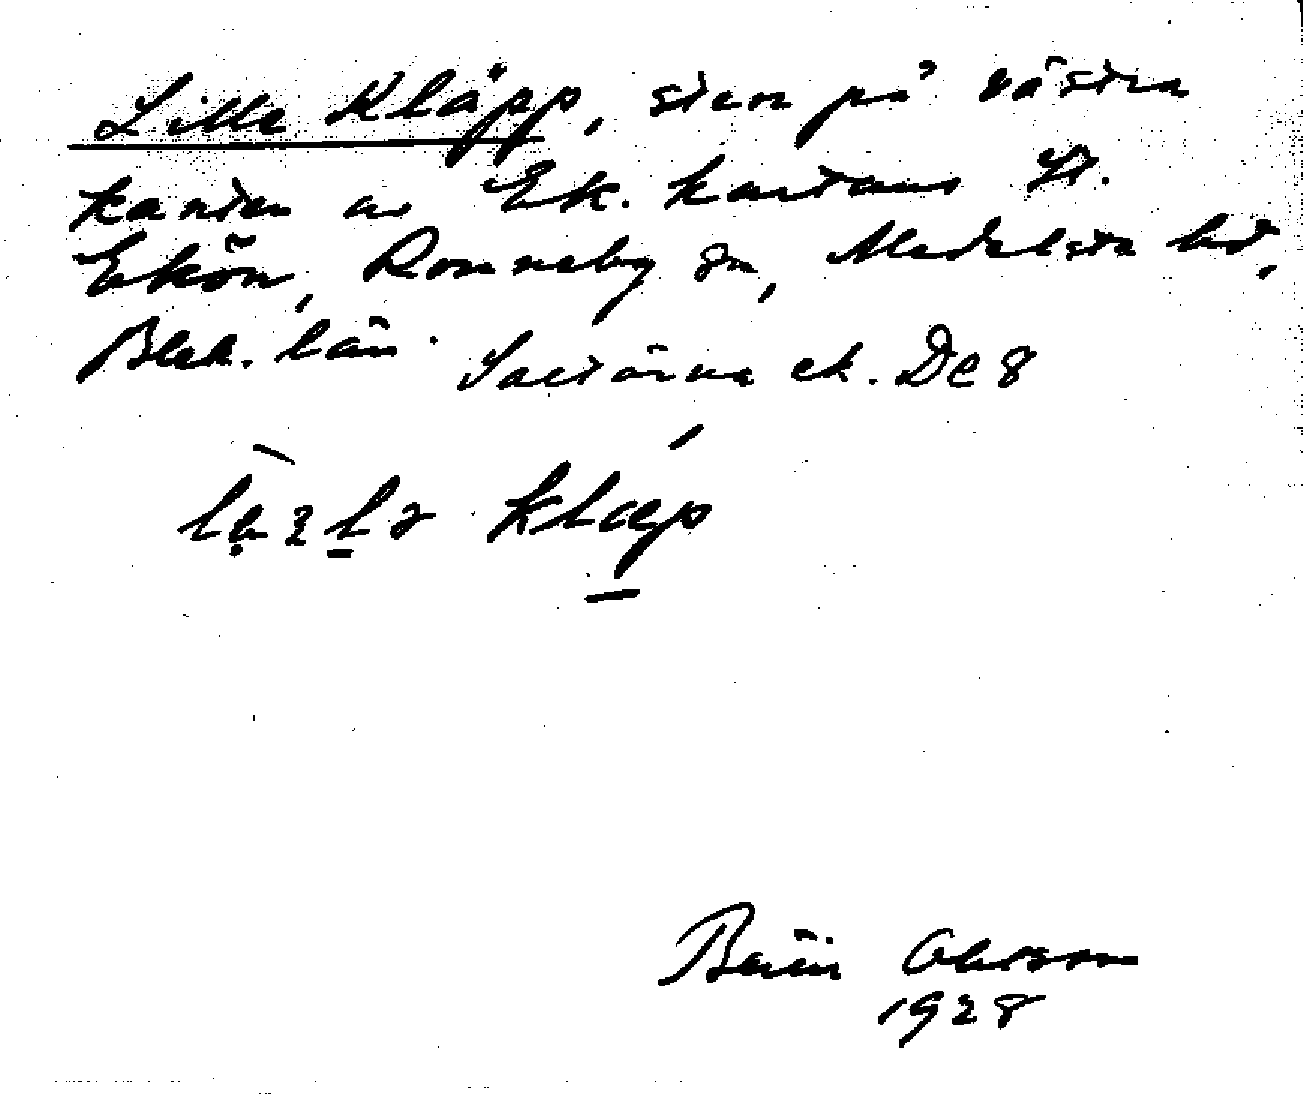 Lille Kläpp, sten på västra
kanten av Ek. kartans St.
Ekön, Ronneby sn, Medelsta hd,
Blek. län. Saltärna ek. De 8
klæp
Ohlsson
1928